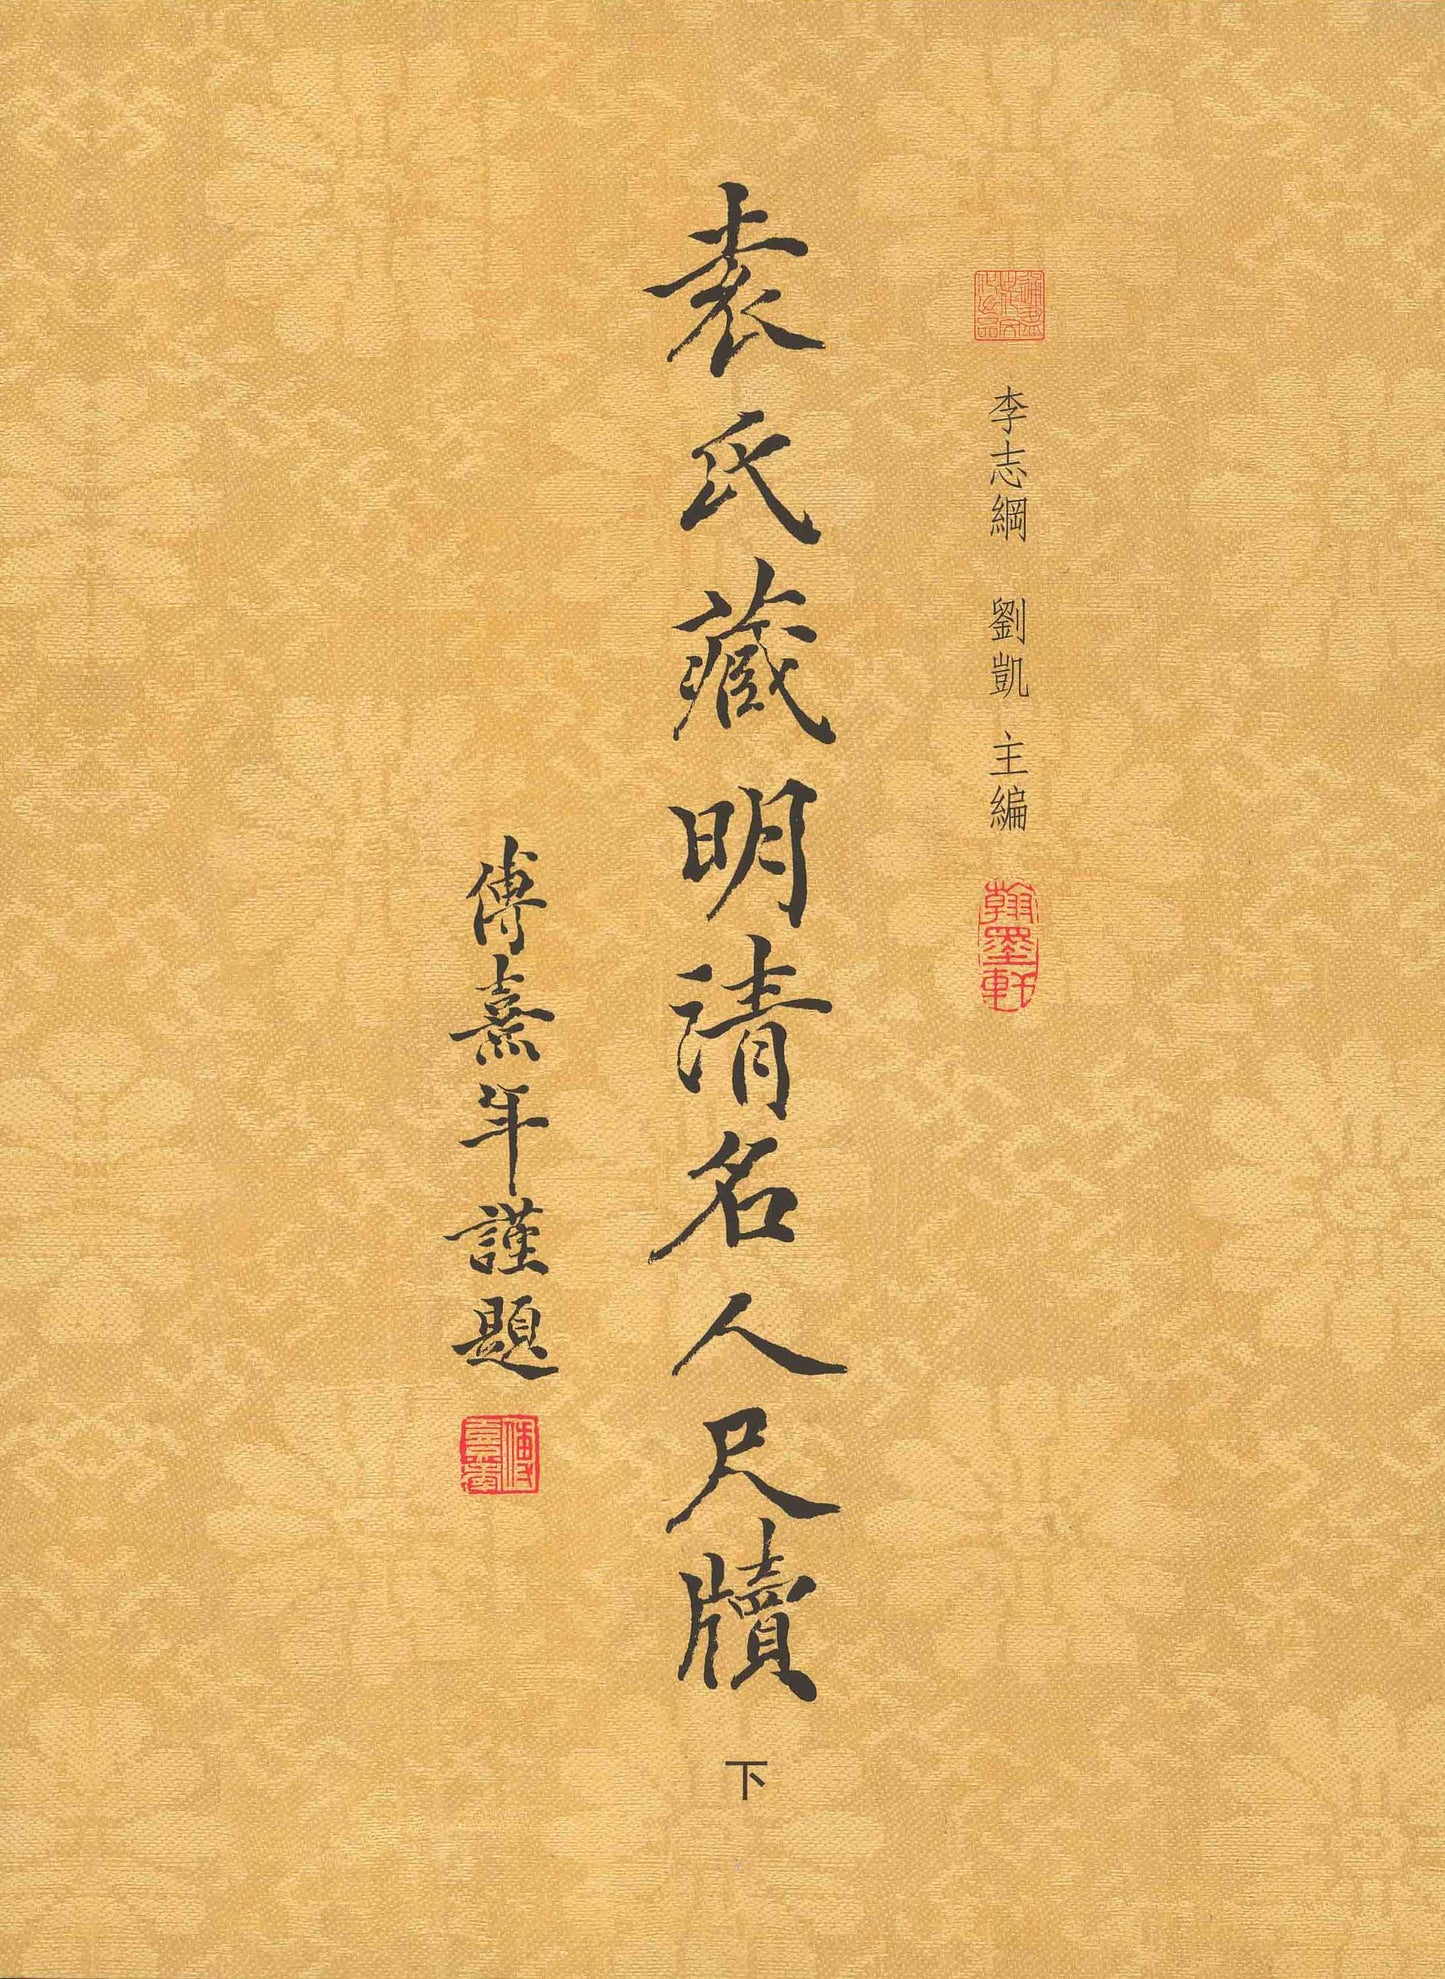 李志綱 劉凱 主編
翰墨軒
袁氏藏明清名人尺牘
下
傅熹年謹題